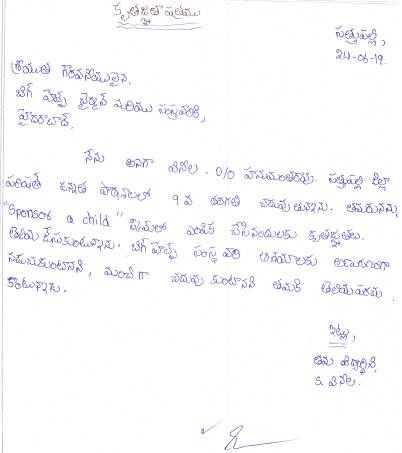 కృతజ్ఞతా పత్రము
సత్తుపల్లి,
24-06-19.
శ్రీయుత గౌరవనీయులైన,
బిగ్ హెల్ప్ చైర్మన్ మరియు సంస్థవారికి,
హైదరాబాద్.
నేను అనగా వెన్నెల. D/O హనుమంతరావు. సత్తుపల్లి జిల్లా
పరిషత్ ఉన్నత పాఠశాలలో 9 వ తరగతి చదువుతున్నాను. తమరు నన్ను
"Sponsor a child" స్కీమ్‌లో ఎంపిక చేసినందులకు కృతజ్ఞతలు
తెలియజేసుకుంటున్నాను. బిగ్ హెల్ప్ సంస్థ వారి ఆశయాలకు అనుగుణంగా
నడుచుకుంటానని, మంచిగా చదువుకుంటానని తమకి తెలియపరచు
కొంటున్నాను.
ఇట్లు,
తమ విద్యార్థిని,
వెన్నెల.